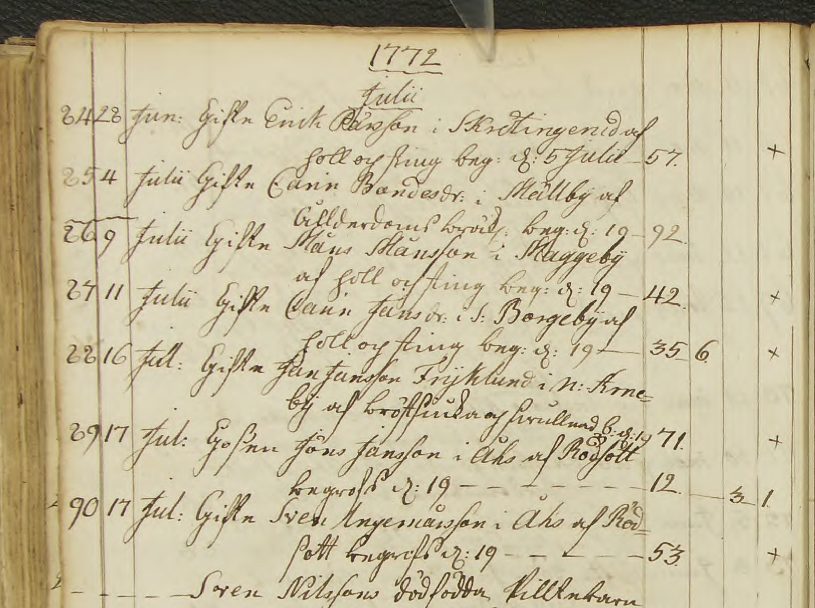 1772
Julii
84 28 Jun: Gifte Erick Pärsson i Skråtingerud af
håll och sting beg: d: 5 Julii - 57. +
85 4 Julii Gifte Carin Bondesdr: i Mällby af
Ållderdoms bräck: beg: d: 19 - 92.
86 9 Julii Gifte Måns Månsson i Maggeby
af håll och sting beg: d: 19 - 42. +
87 11 Julii Gifte Carin Jansdr: i S: Borgeby af
håll och sting beg: d: 19 - 35 6. +
88 16 Jul: Gifte Jan Jansson Fryklund i N: Arne=
by af bröstsiuka och b: d: 19 71. +
89 17 Jul: Gossen Jöns Jansson i Åhs af Rödsott
begrofs d: 19 - - - - - - - 12. 3 1.
90 17 Jul: Gifte Sven Ingemarsson i Åhs af Röd=
sott begrofs d: 19 - - - - - 53. +
- - - - - Sven Nilssons dödfödda Pilltebarn